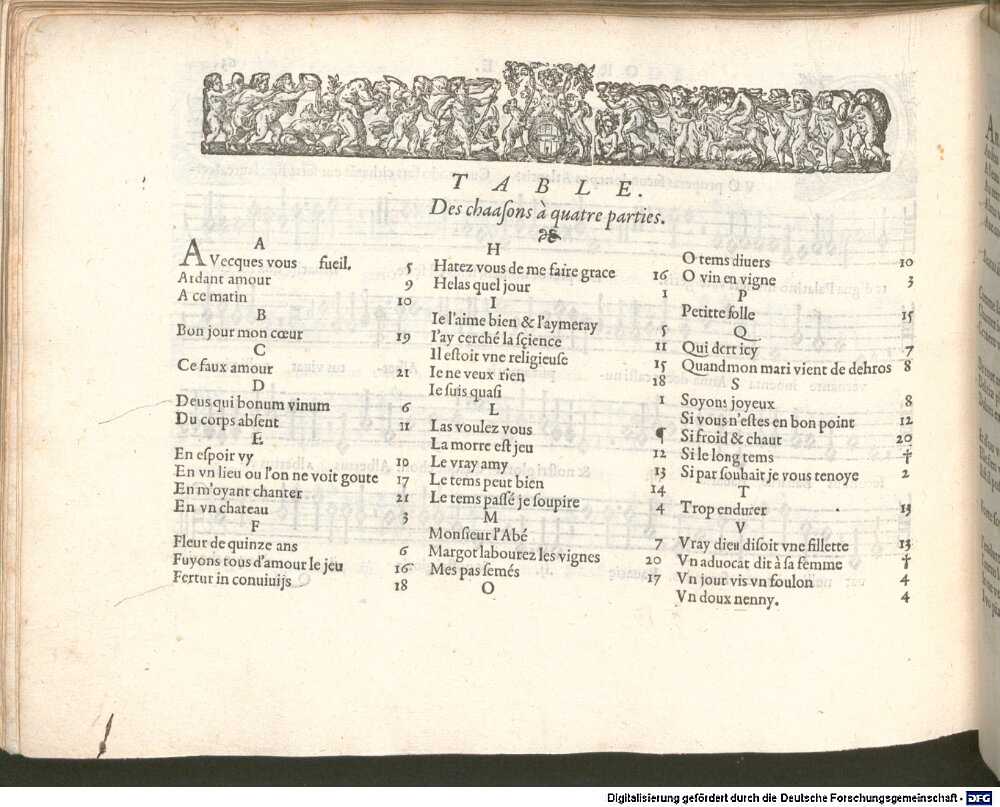 T A B L E .
Des chaaſons à quatre parties.
A
AVecques vous fueil. 5
Ardant amour 9
A ce matin 10
B
Bon jour mon cœur 19
C
Ce faux amour 21
D
Deus qui bonum vinum 6
Du corps abſent 11
E
En eſpoir vy 10
En vn lieu ou l'on ne voit goute 17
En m'oyant chanter 21
En vn chateau 3
F
Fleur de quinze ans 6
Fuyons tous d'amour le jeu 16
Fertur in conuiuijs 18
H
Hatez vous de me faire grace 16
Helas quel jour 1
I
Ie l'aime bien & l'aymeray 5
I'ay cerché la ſçience 11
Il eſtoit vne religieuſe 15
Ie ne veux rien 18
Ie ſuis quaſi 1
L
Las voulez vous ¶
La morre eſt jeu 12
Le vray amy 13
Le tems peut bien 14
Le tems paſſé je ſoupire 4
M
Monſieur l'Abé 7
Margot labourez les vignes 20
Mes pas ſemés 17
O
O tems diuers 10
O vin en vigne 3
P
Petitte folle 15
Q
Qui dort icy 7
Quand mon mari vient de dehros 8
S
Soyons joyeux 8
Si vous n'eſtes en bon point 12
Si froid & chaut 20
Si le long tems †
Si pat ſouhait je vous tenoye 2
T
Trop endurer 13
V
Vray dieu diſoit vne fillette 13
Vn aduocat dit à ſa femme †
Vn jour vis vn foulon 4
Vn doux nenny. 4
Digitalisierung gefördert durch die Deutsche Forschungsgemeinschaft - DFG